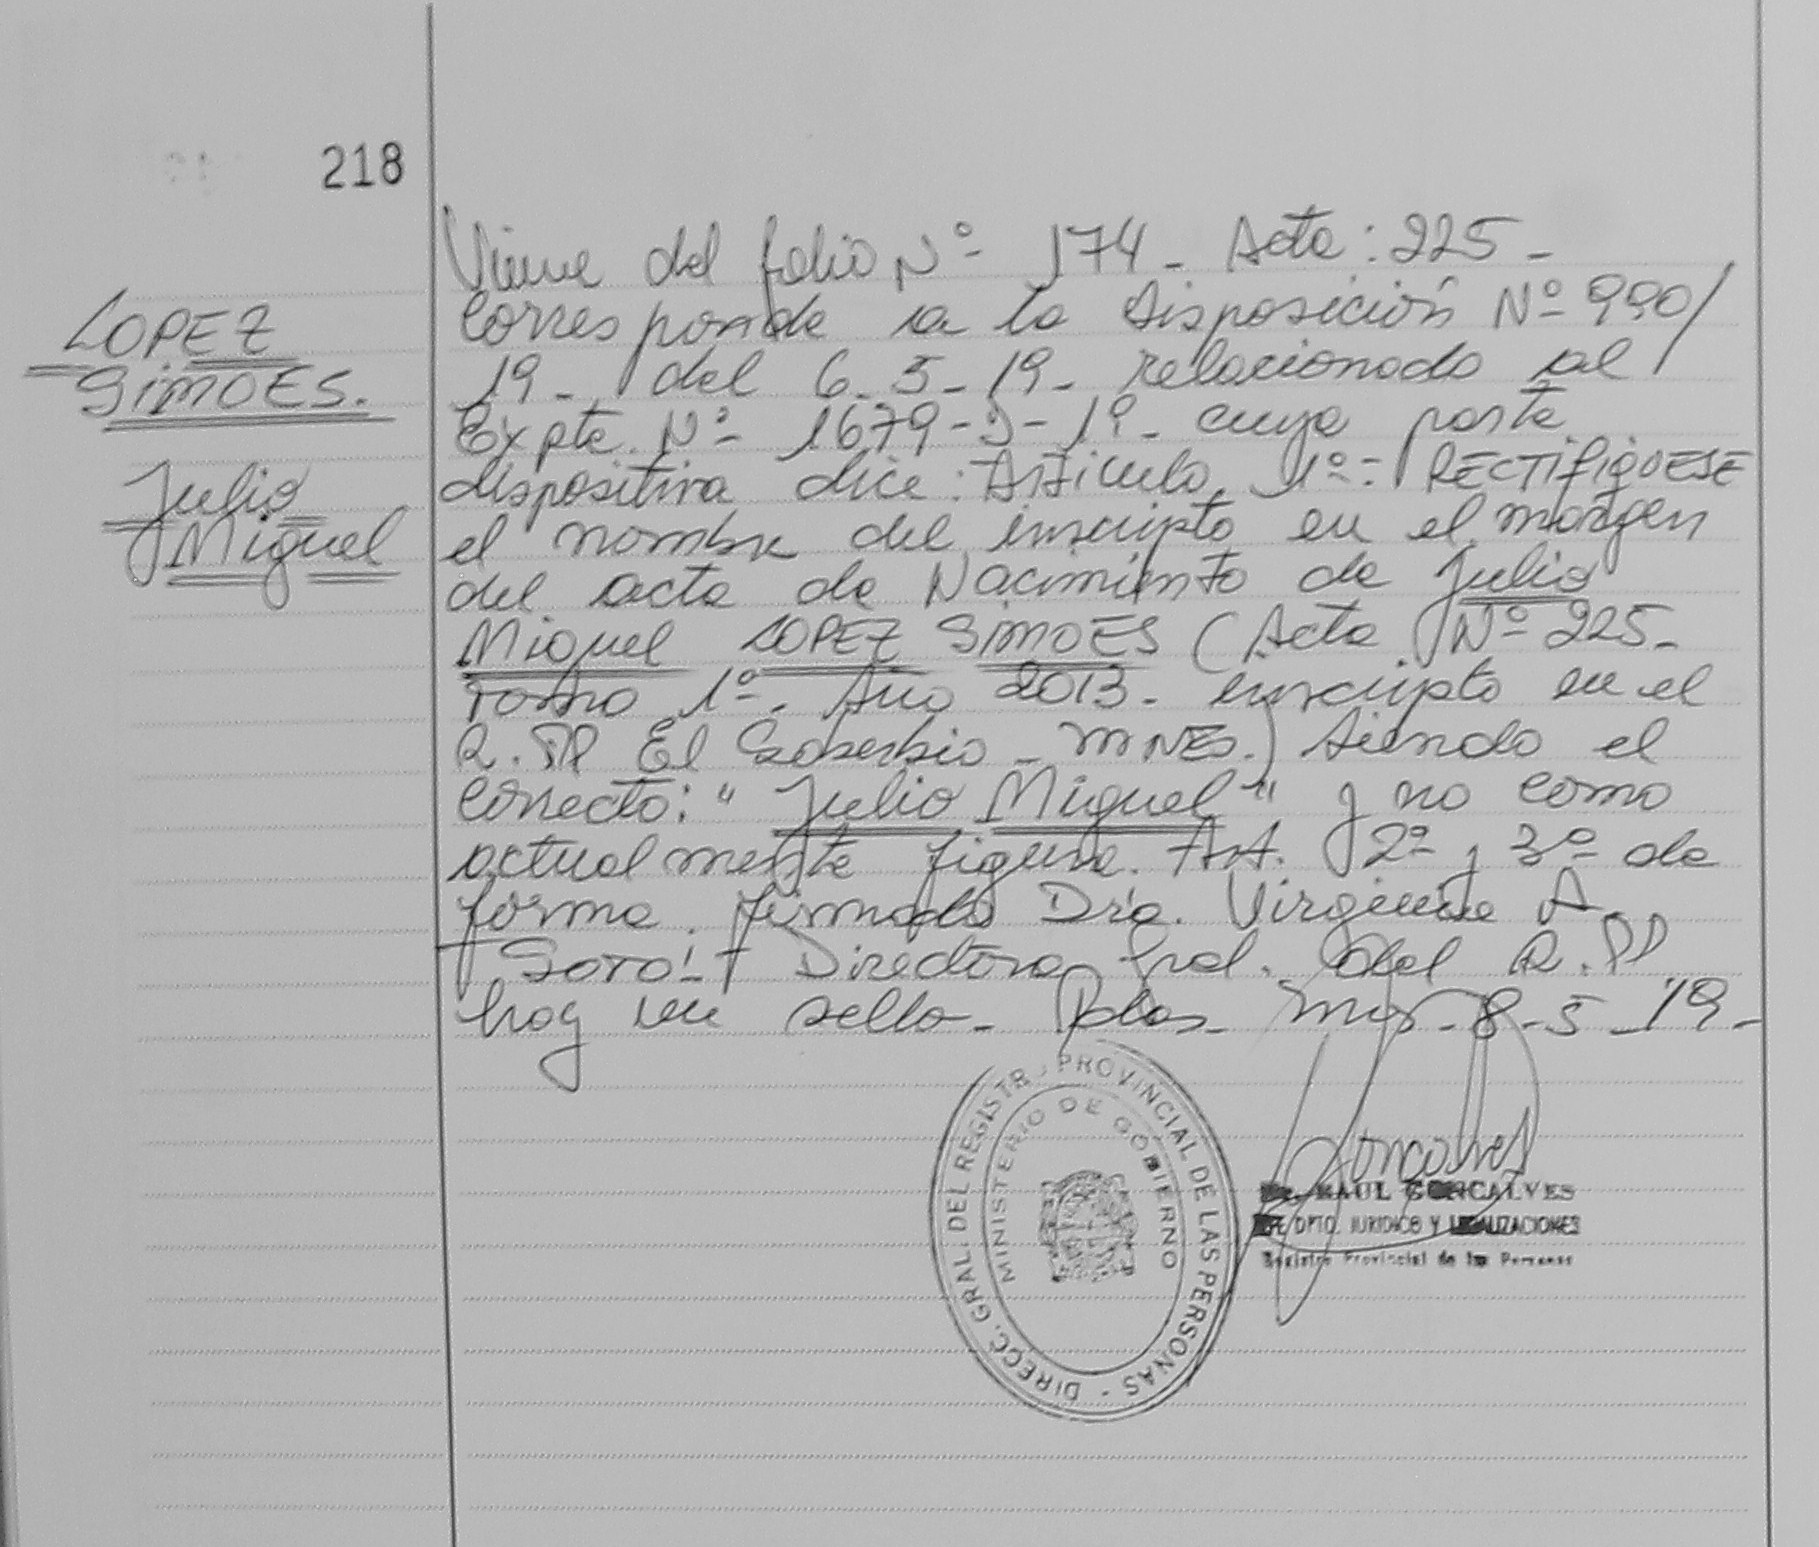 218
LOPEZ
SIMOES.
Julio
Miguel
Viene del folio Nº 174_ Acta: 225_
Corresponde a la disposición Nº 990/
19_ del 6_5_19_ relacionado al
Expte. Nº 1679- -19_ cuya parte
dispositiva dice: Articulo 1º: RECTIFIQUESE
el nombre del inscripto en el margen
del acta de Nacimiento de Julio
Miguel LOPEZ SIMOES (Acta Nº 225_
Tomo 1º_ Año 2013_ inscripto en el
R.PP El Soberbio _ MNES.) siendo el
correcto: "Julio Miguel" y no como
actualmente figura. Art. 2º y 3º de
forma. firmado Dra. Virginia A
Directora Gral. del R.PP
hay un sello_ Pdas_ Mnes_ 8_5_19_
DIRECC. GRAL. DEL REGISTR. PROVINCIAL DE LAS PERSONAS -
MINISTERIO DE GOBIERNO
Goncalves
RAUL GONCALVES
DPTO. JURIDICO Y LEGALIZACIONES
Registro Provincial de las Personas